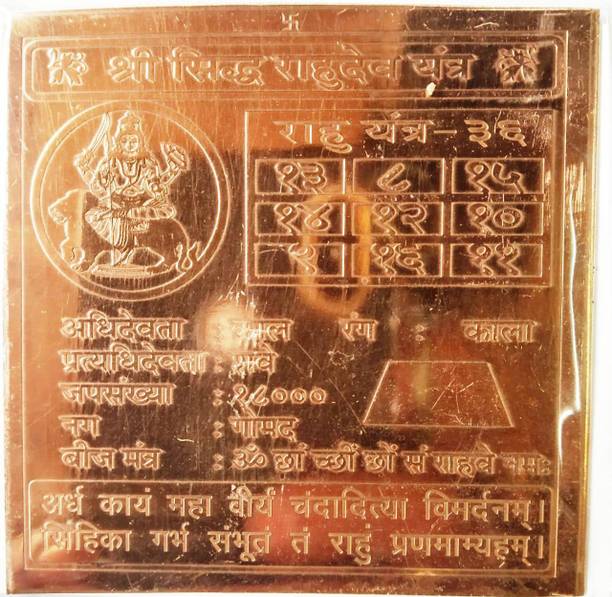 श्री सिद्ध राहुदेव यंत्र
राहु यंत्र-३६
१३ ८ १५
१४ १२ १०
९ १६ ११
अधिदेवता : काल रंग : काला
प्रत्यधिदेवता :
जपसंख्या : १८०००
नग : गोमद
बीज मंत्र : ॐ छां च्छीं छों सं राहवे नमः
अर्ध कायं महा वीर्यं चंदादित्या विमर्दनम्।
सिंहिका गर्भ संभूतं तं राहुं प्रणमाम्यहम्।